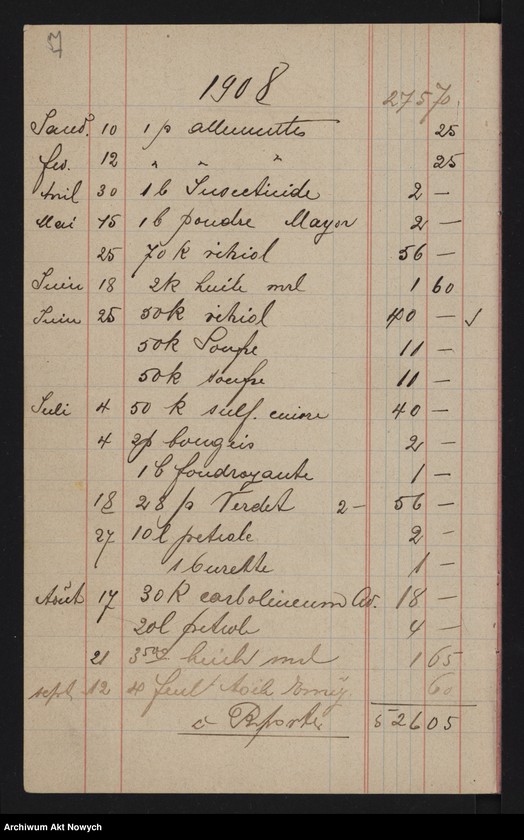 1908
275 70.
Janv. 10 1 p allumettes 25
fev. 12 " " " 25
Avril 30 1 b Insecticide 2 —
Mai 15 1 b poudre Mayor 2 —
25 70 k vitriol 56 —
Juin 18 2k huile mrl 1 60
Juin 25 50k vitriol 40 — ✓
50k Soufre 11 —
50k soufre 11 —
Juli 4 50 k sulf. cuivre 40 —
4 2p bougies 2 —
1 b foudroyante 1 —
18 28 p Verdet 2 — 56 —
27 10l petrole 2 —
1 burette 1 —
Août 17 30 K carbolineum Av. 18 —
20l petrole 4 —
21 huile mrl 1 65
sept 12 4 feuil toile Emery. 60
a Reporter 526 05
Archiwum Akt Nowych